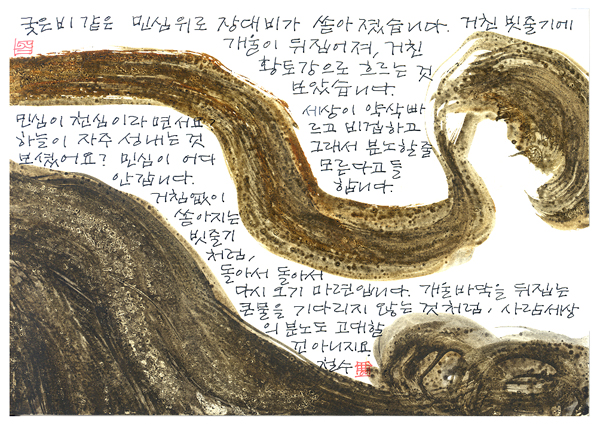 궂은비 같은 민심 위로 장대비가 쏟아 졌습니다. 거친 빗줄기에
개울이 뒤집어져, 거친
황토강으로 흐르는 것
보았습니다.
세상이 약삭빠
르고 비겁하고
그래서 분노할줄
모른다고들
합니다.
민심이 천심이라면서요?
하늘이 자주 성내는 것
보셨어요? 민심이 어디
안갑니다.
거침없이
쏟아지는
빗줄기
처럼,
돌아서 돌아서
다시 오기 마련입니다. 개울바닥을 뒤집는
큰물을 기다리지 않는 것처럼, 사람세상
의 분노도 고대할
아니지요.
철수